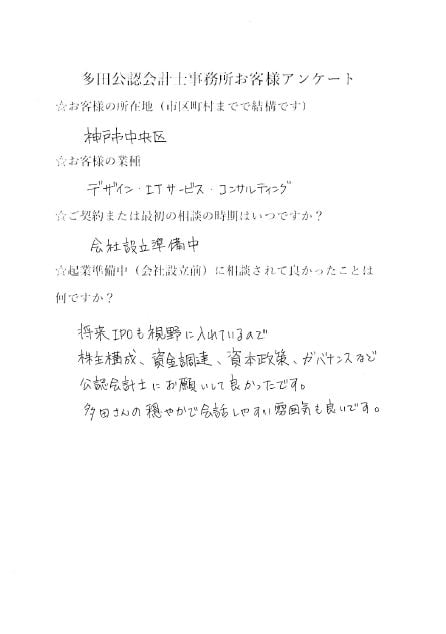 多田公認会計士事務所お客様アンケート
☆お客様の所在地（市区町村までで結構です）
神戸市中央区
☆お客様の業種
デザイン・ITサービス・コンサルティング
☆ご契約または最初の相談の時期はいつですか？
会社設立準備中
☆起業準備中（会社設立前）に相談されて良かったことは
何ですか？
将来IPOも視野に入れているので
株主構成、資金調達、資本政策、ガバナンスなど
公認会計士にお願いして良かったです。
多田さんの穏やかで会話しやすい雰囲気も良いです。